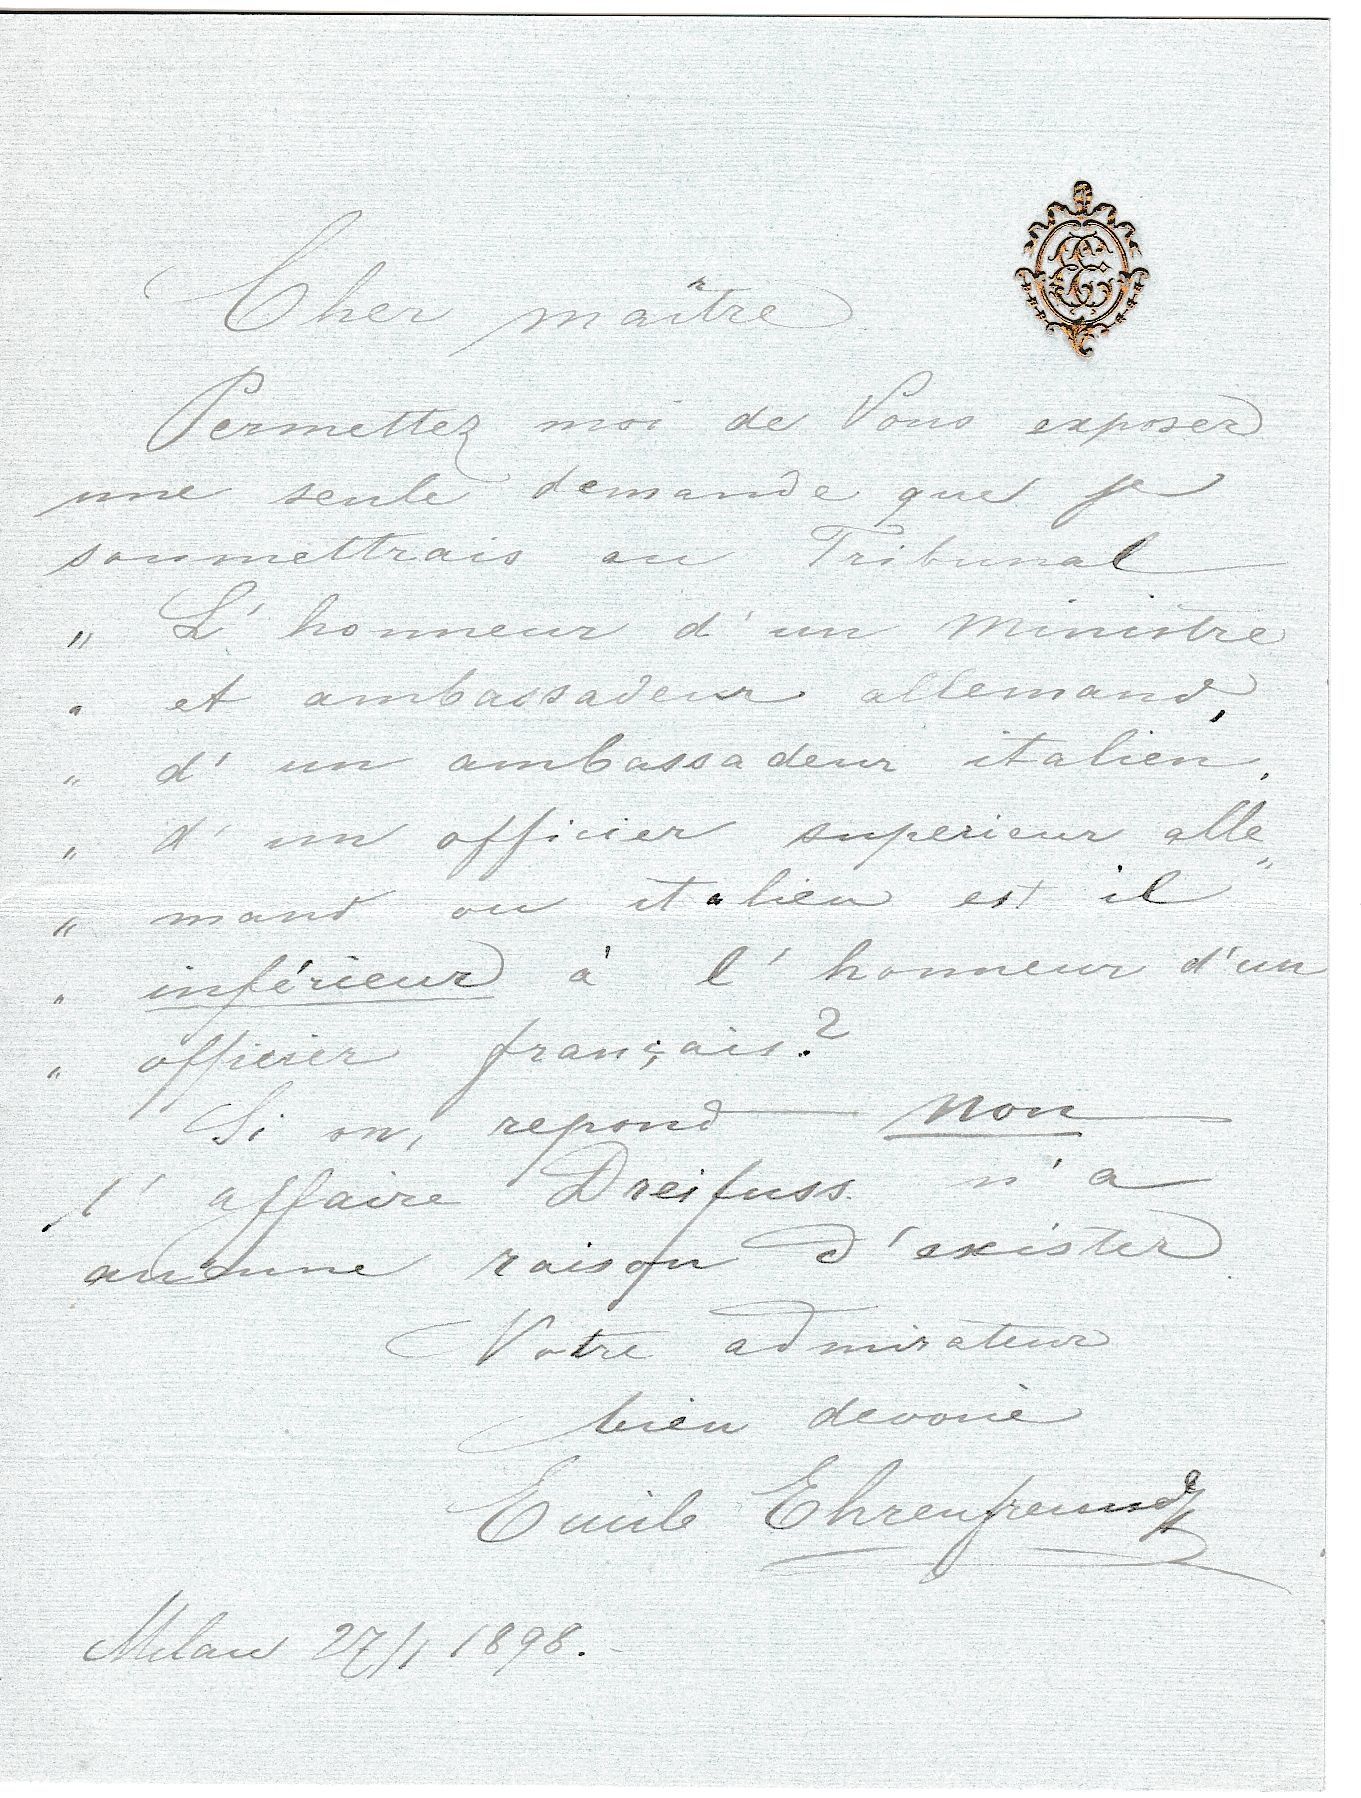 Cher maître
Permettez moi de Vous exposer
une seule demande que je
soumettrais au Tribunal
„ L'honneur d'un ministre
„ et ambassadeur allemand,
„ d'un ambassadeur italien,
„ d'un officier superieur alle„
„ mand ou italien est il
„ inférieur à l'honneur d'un
„ officier français?
Si on, repond non
l'affaire Dreifuss n'a
aucune raison d'exister
Votre admirateur
bien devoué
Emile Ehrenfreund
Milan 27/1 1898.-